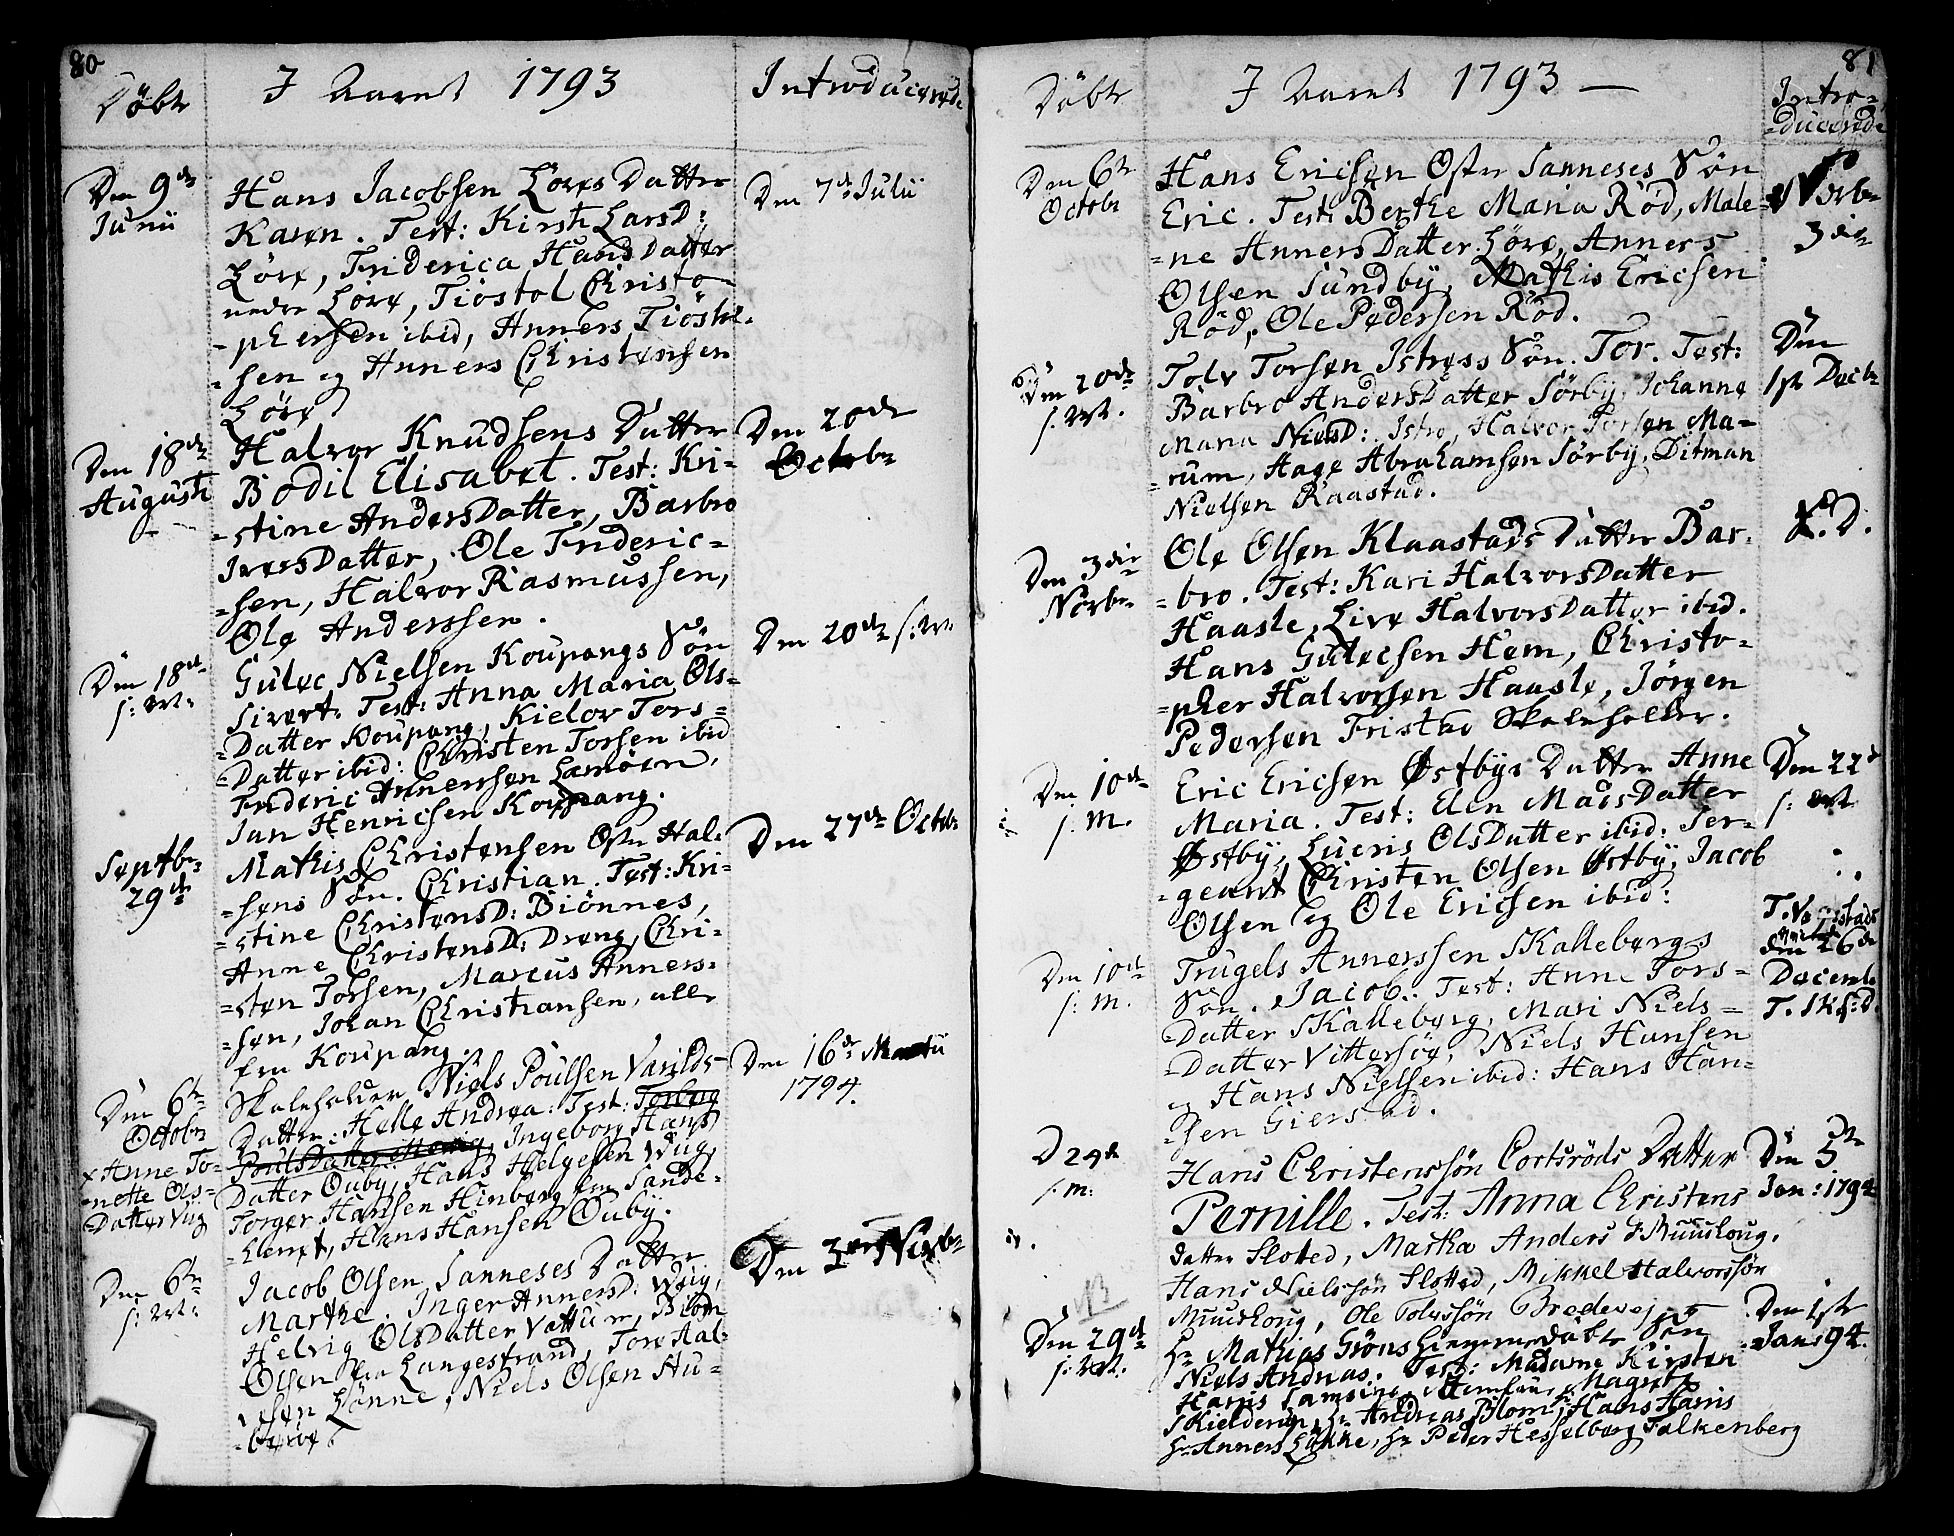 80
Döbte
I Aaret 1793
Introducerede
Den 9de
Junii
Hans Jacobsen Löves Datter
Karen. Test: Kirsti LarsD:
Löve, Friderica HansDatter
nedre Löve, Tiostol Christo-
-phersen ibid, Anners Tiöstel-
-sen og Anners Christensen
Löve
Den 7de Julii
Den 18de
Augusti
Halvor Knudsens Datter
Bodil Elisabet. Test: Kri-
-stine AndersDatter, Barbro
IversDatter, Ole Frideric-
-sen, Halvor Rasmussen,
Ole Anderssen.
Den 20de
Octobr
Den 18de
s: M:
Gulec Nielsen Koupangs Sön
Sivert. Test: Anna Maria Ols-
-Datter Koupang, Kielov Tors-
Datter ibid: Christen Torsen ibid
Frideric Annerssen
Jan Henricsen Koupang.
Den 20de s: M:
Septbr
29de
Mathis Christensen Östr Hal-
-sens Sön. Christian. Test: Kri-
-stine ChristensD: Biönnes,
Anne ChristensD: Dreng, Chri-
-sten Torsen, Marcus Anners-
-sen, Johan Christiansen, alle
fra Koupang.
Den 27de Octobr
Den 6te
Octobr
x Anne To-
-nette Ols-
Datter Vug
Skoleholder Niels Poulsen Varilds
Datter: Helle Andrea: Test: Torborg
PoulsDatter, Ingeborg Hans
Datter Ouby, Hans Helgesen Vug,
Torger Hansen Hinberg fra Sande-
-herret, Hans Hansen Ouby.
Den 16de Martii
1794.
Den 6te
s: M:
Jacob Olsen Sanneses Datter
Marthe. Inger AnnersD: Vug,
Helvig OlsDatter Vattum, Biörn
Olsen fra Langestrand, Tore Hal-
vesen Lönne, Niels Olsen Hu-
Den 3die Novbr
81
Döbte
I Aaret 1793 —
Intro-
-ducerede
Den 6te
Octobr
Hans Ericsen Öster Sanneses Sön
Eric. Test: Berthe Maria Röd, Male-
-ne AnnersDatter Löve, Anners
Olsen Sundby, Mathis Ericsen
Röd, Ole Pedersen Röd.
Novbr
3die
Den 20de
s: M.
Tolv Torsen Istress Sön. Tor. Test:
Barbro AndersDatter Sörby, Johanne
Maria NielsD: Istre, Halvor Torsen Ma-
-rum, Aage Abrahamsen Sörby, Ditman
Nielsen Raastad.
Den
1ste Decbr
Den 3die
Novbr
Ole Olsen Klaastads Datter Bar-
-bro. Test: Kari HalvorsDatter
Haasle, Live HalvorsDatter ibid.
Hans Gulecsen Hem, Christo-
-pher Halvorsen Haasle, Jörgen
Pedersen Fristad Skoleholder.
D.
Den 10de
s: M.
Eric Ericsen Østbys Datter Anne
Maria. Test: Elen MadsDatter
Østby, Sueris OlsDatter ibid: Ser-
-geant Christen Olsen Østby, Jacob
Olsen og Ole Ericsen ibid:
Den 22de
s: M
Den 10de
s: M.
Trugels Annerssen Skallebergs
Sön. Jacob. Test: Anne Tors-
Datter Skalleberg, Mari Niels-
-Datter Vittersöe, Niels Hansen
og Hans Nielsen ibid: Hans Han-
-sen Gierstad.
den 26de
Decemb
D 29de
s: m:
Hans Christenssön Cortsröds Datter
Pernille. Test: Anna Christens
Datter Sloted, Martha Anders D Muuschoug,
Hans Nielssön Slotted, Mikkel Halvorssön
Muuschoug, Ole Tolvssön Bredevej
Den 5te
Jan: 1794
NB
Den 29de
s: M.
Hr Mathias Gröns hiemmedöbte Sön
Niels Andreas. Test: Madame Kirsten
Harris Lamsine, Magrete
Skielderup, Hr Andreas Blom, Hr Hans Harris
Hr Anners Lökke, Hr Peder Hesselberg Falkenberg
Den 1ste
Jan: 94.